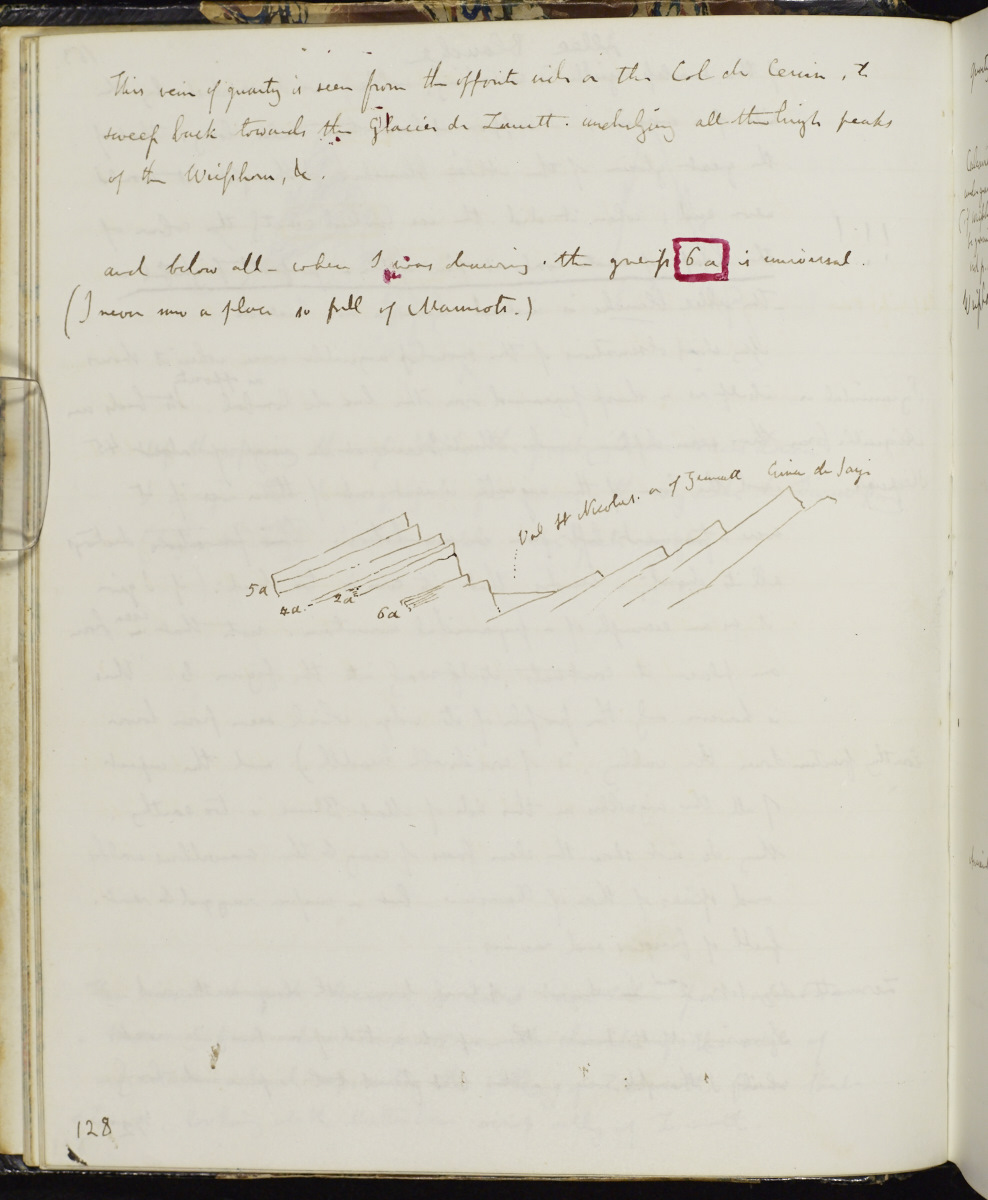 This vein of quartz is seen from the opposite side on the Col de Cervin, to
sweep back towards the Glacier de Zmutt. underlying all the high peaks
of the Weisshorn, &c.
and below all - where I was drawing. the gneiss 6 a is universal.
(I never saw a place so full of Marmots.)
Val St Nicolas. or of Zermatt Cima de Jazi
5a
4a. 2a
6a
128